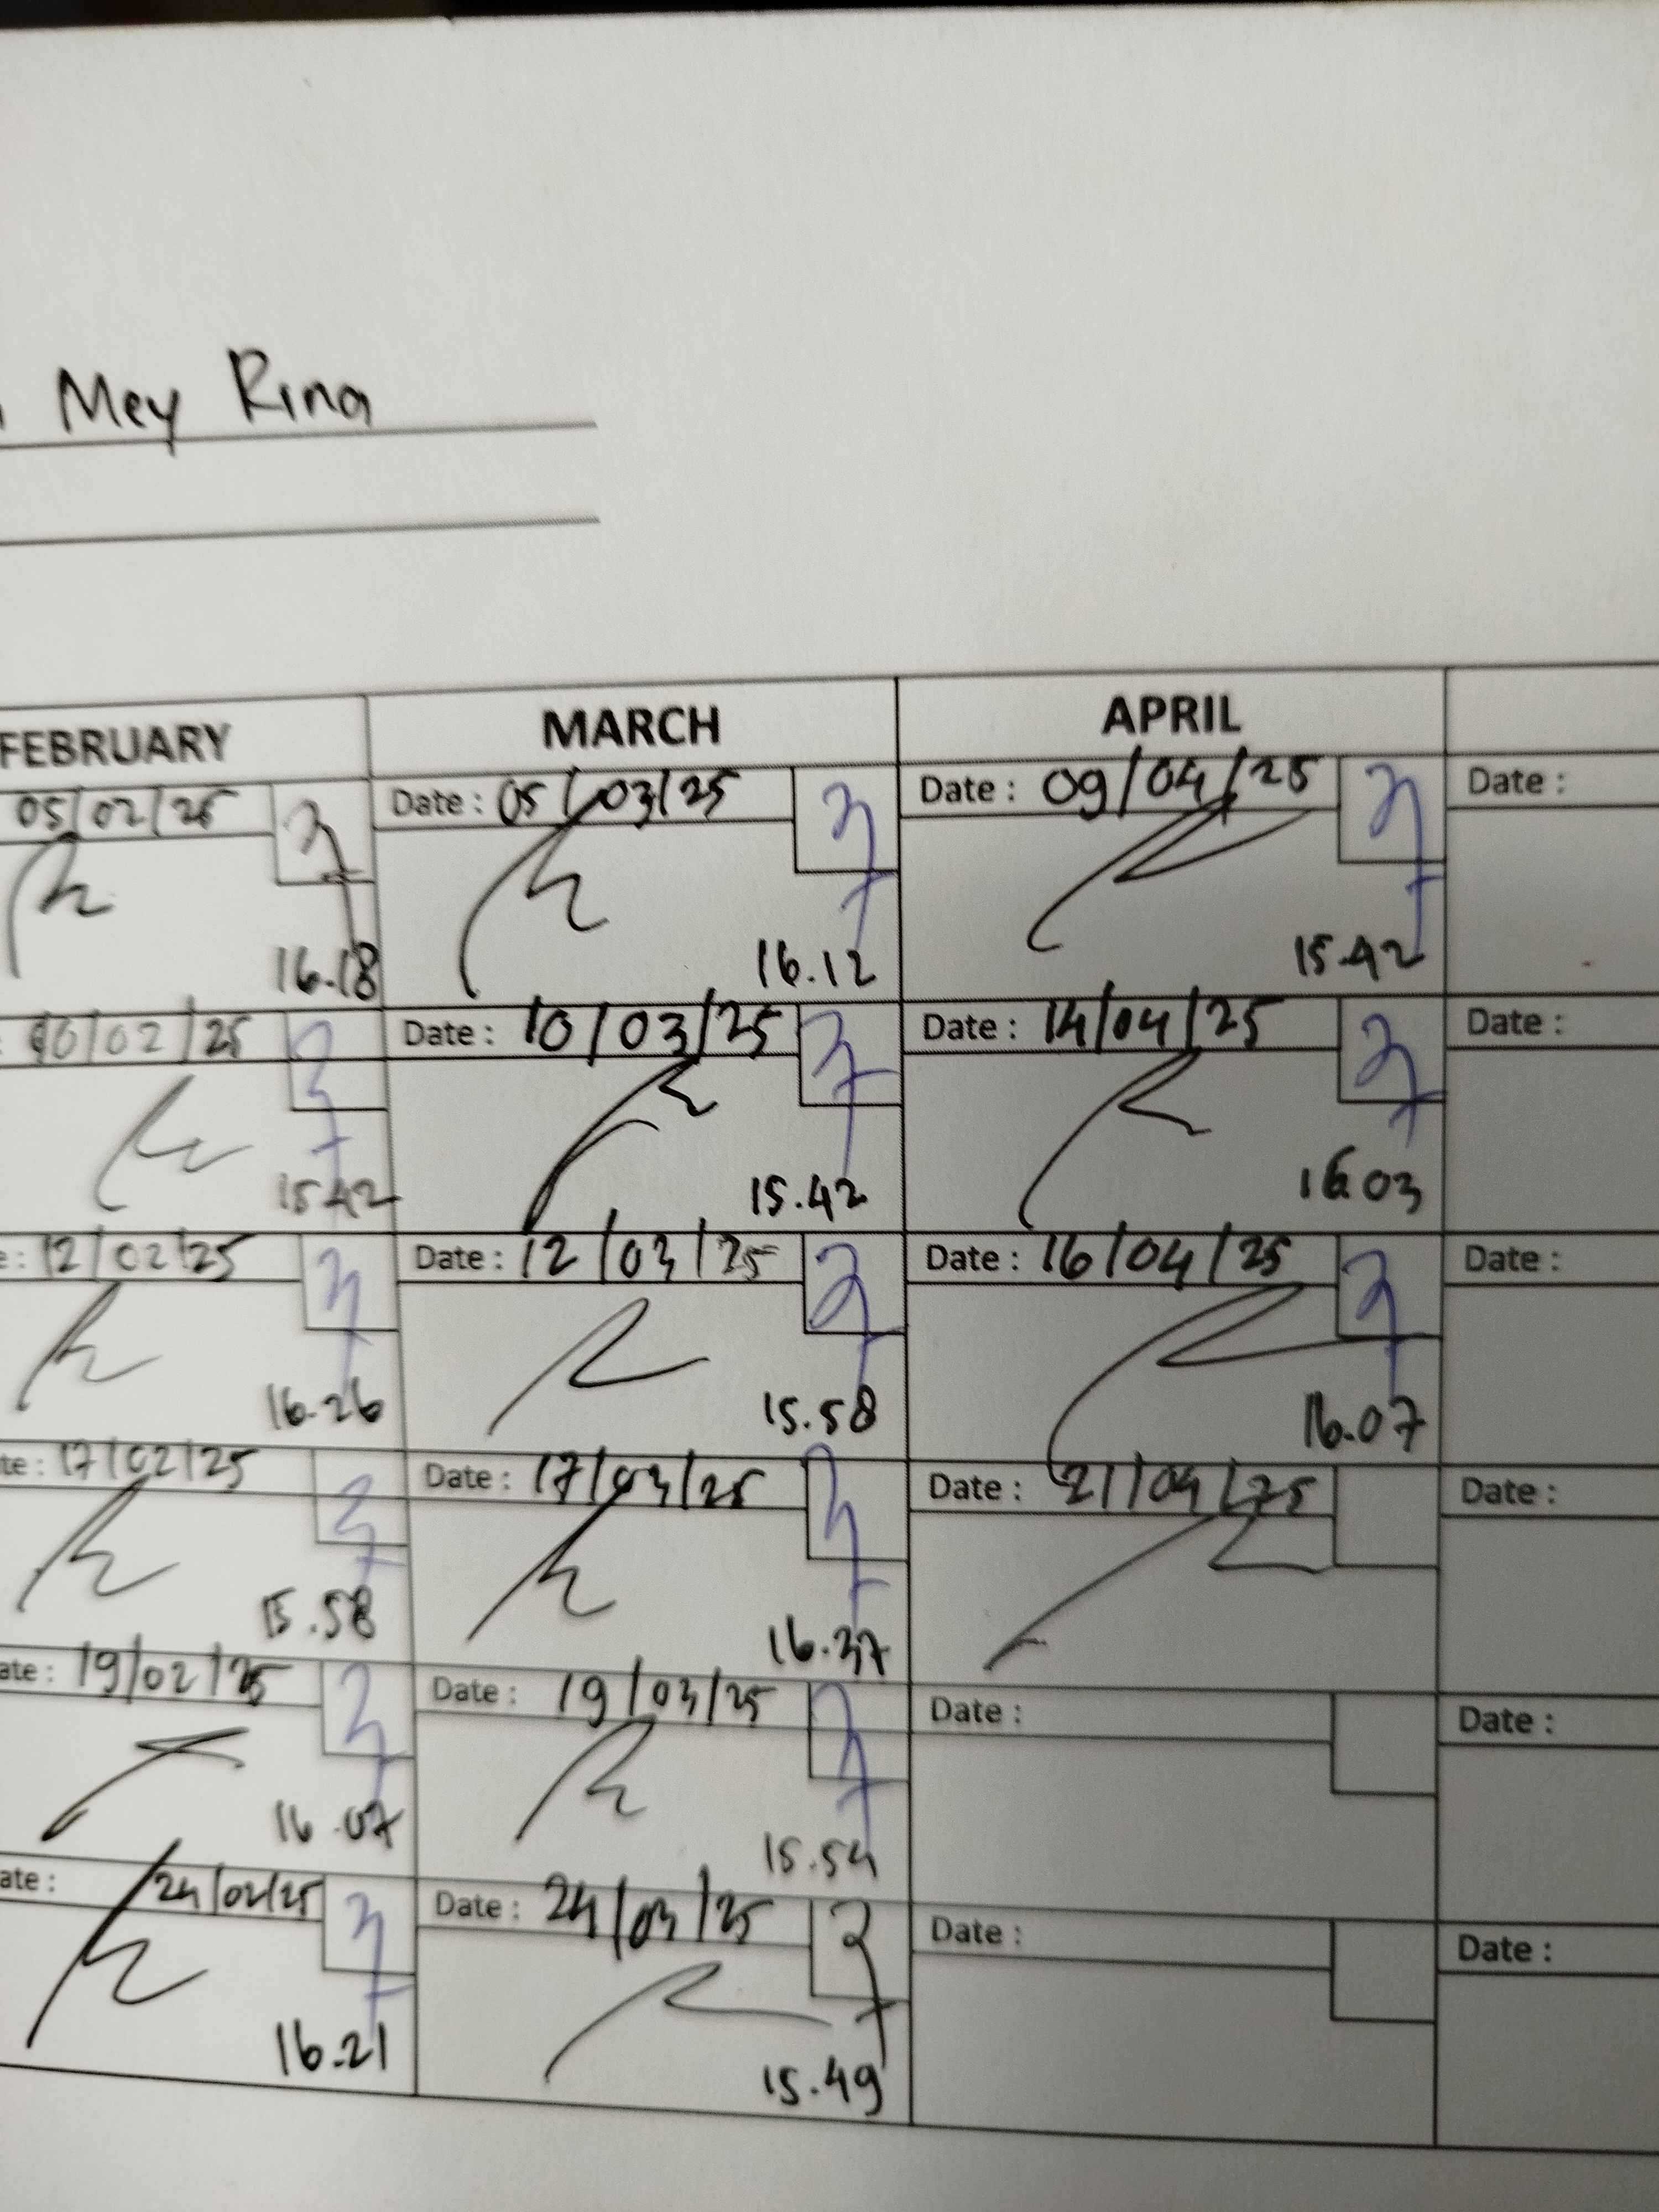 Mey Rina
FEBRUARY MARCH APRIL
05/02/25 Date : 05/03/25 Date : 09/04/25 Date :
16.18 16.12 15.42
/02/25 Date : 10/03/25 Date : 14/04/25 Date :
15.42 15.42 16.03
e : 12/02/25 Date : 12/03/25 Date : 16/04/25 Date :
16.26 15.58 16.07
te : 17/02/25 Date : 17/03/25 Date : 21/04/25 Date :
15.58 16.37
ate : 19/02/25 Date : 19/03/25 Date : Date :
16.07 15.54
ate : 24/02/25 Date : 24/03/25 Date : Date :
16.21 15.49